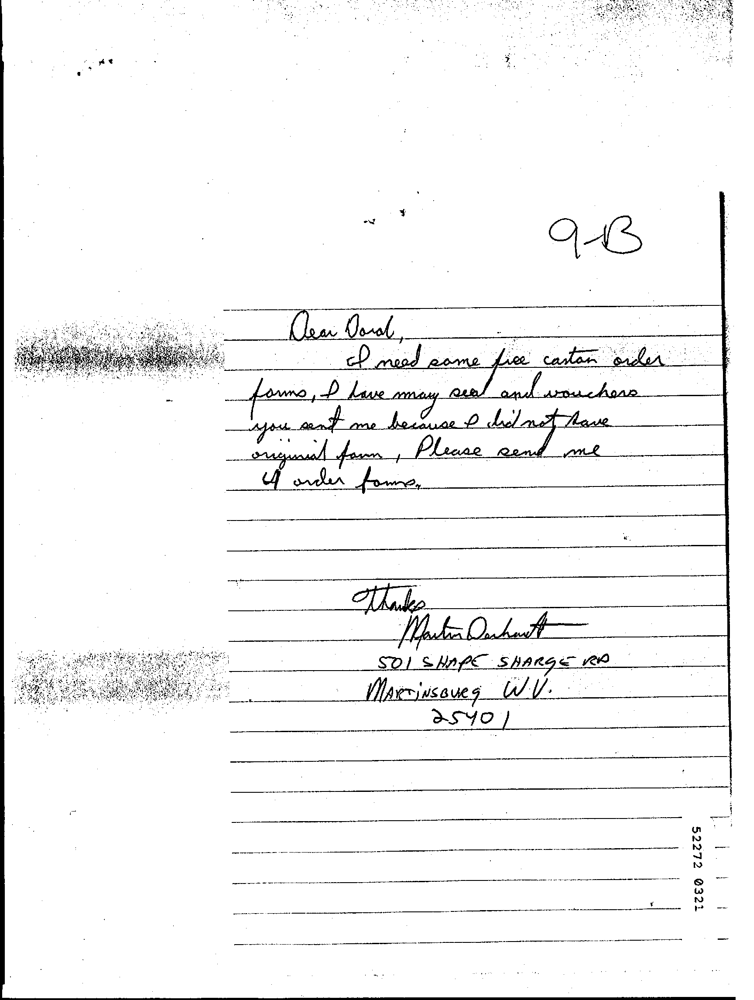 9-B
Dear Doral,
I need some free carton order
forms, I have many seal and vouchers
you sent me because I did not have
originial form, Please send me
4 order forms.
Thanks
Martin
501 SHAPE SHARGE RD
MARTINSBURG W.V.
25401
52272 0321